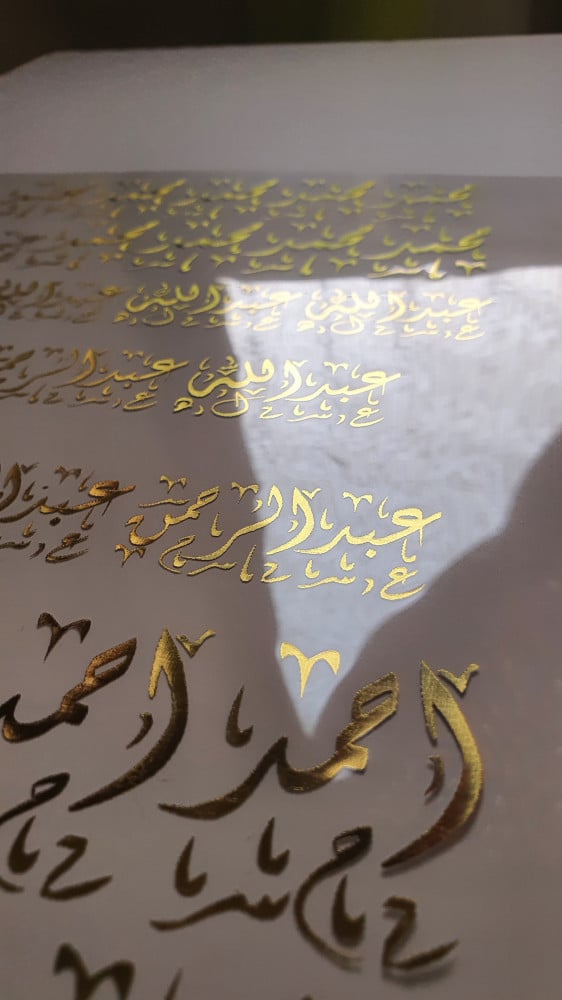 محمد محمد محمد محمد
محمد محمد محمد محمد
عبدالله عبدالله عبدالله
عبدالله عبدالرحمن
عبدالرحمن
احمد احمد